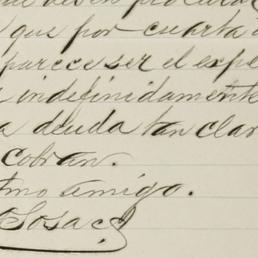 que por cuarta
parece ser el expe
indefinidamente
a deuda tan clar
cobran.
tmo amigo.
Sosa